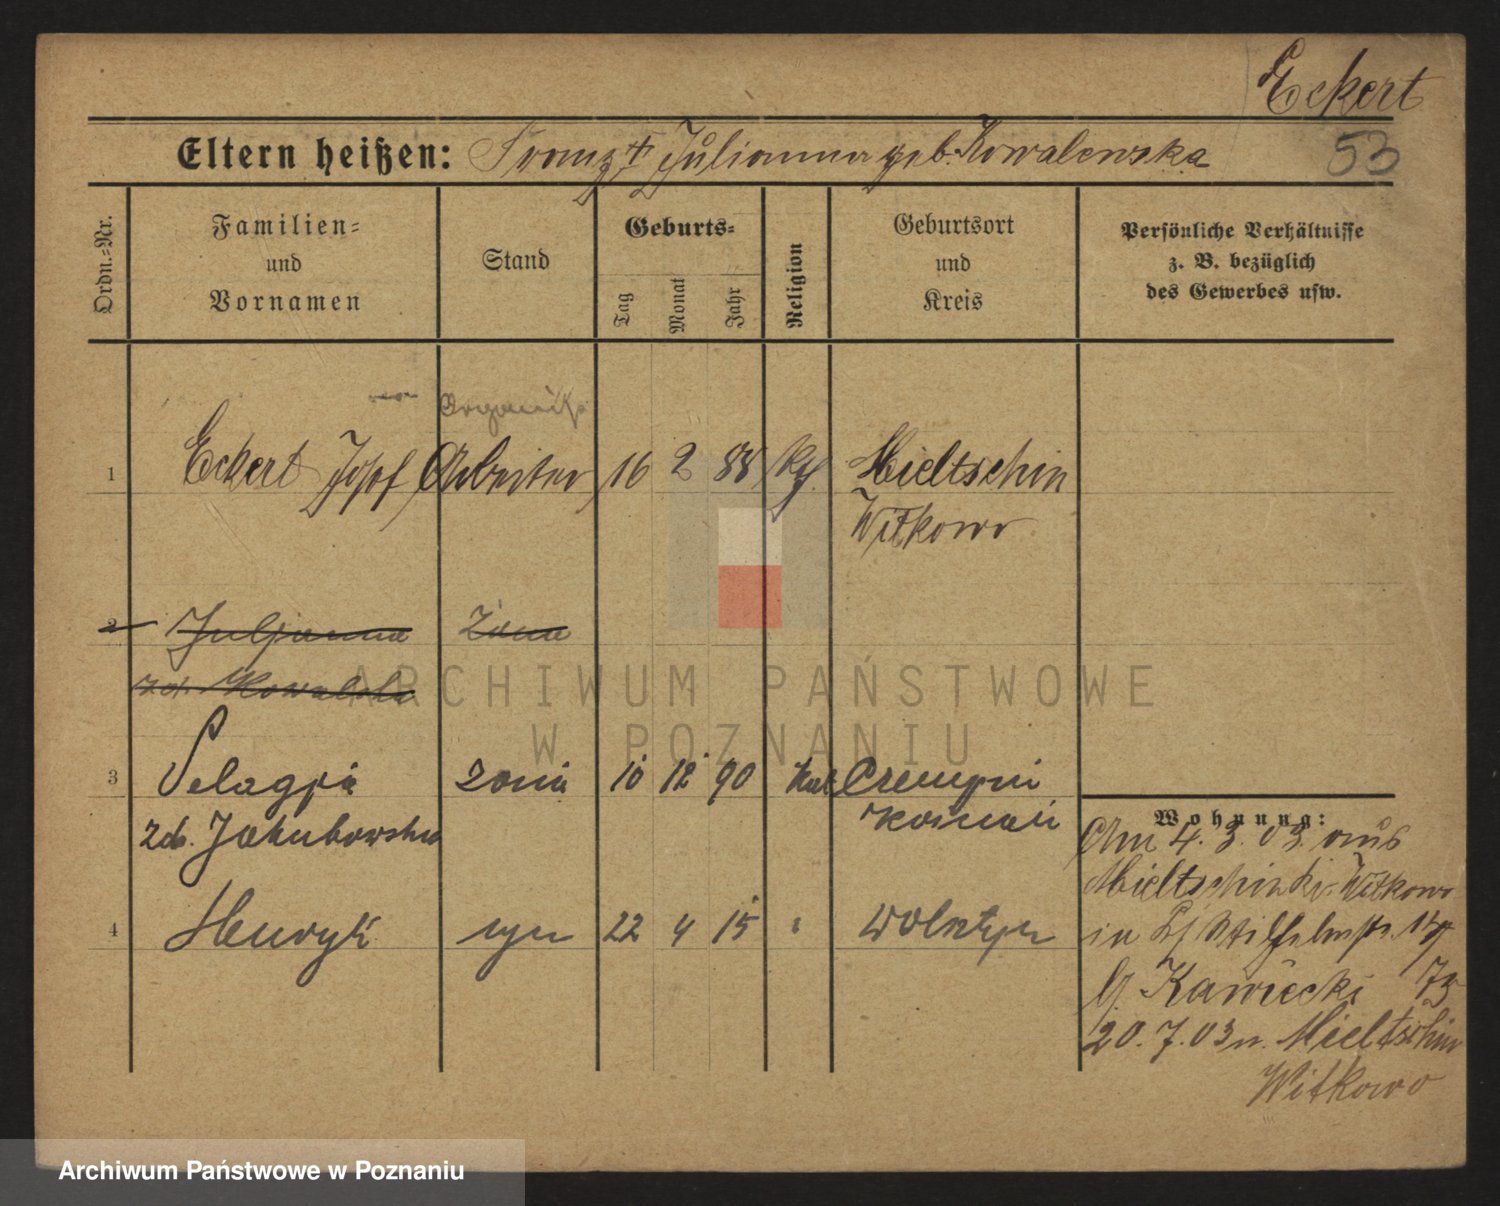 Eckert
53
Eltern heißen: Franz † Julianna geb. Kowalewska
Ordn.-Nr.
Familien-
und
Vornamen
Stand
Geburts-
Tag
Monat
Jahr
Religion
Geburtsort
und
Kreis
Persönliche Verhältnisse
z. B. bezüglich
des Gewerbes usw.
1 Eckert Josef Arbeiter 16 2 88 kf. Mieltschin
Witkowo
2 Juljanna żona
zd. Kowalska
3 Pelagja żona 10 12 90 kat
zd. Jakubowska
4 Henryk syn 22 4 15 " Wolsztyn
Wohnung:
Am 4.3.03. aus
Mieltschin Kr. Witkowo
in
G. Kawiecki 73
20.7.03 n. Mieltschin
Witkowo
ARCHIWUM PAŃSTWOWE
W POZNANIU
Archiwum Państwowe w Poznaniu